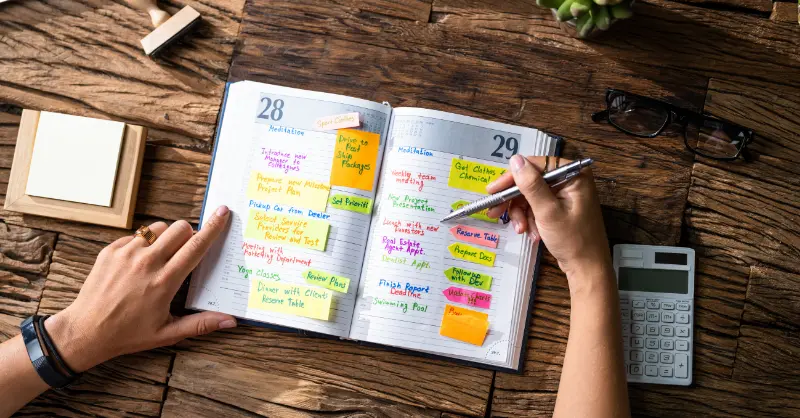 28
Meditation
Introduce new
Manager to
Colleagues
Drive to
Post
Ship
Packages
Prepare new
Project Plan
Set Priority
Pickup Car from Dealer
Select Service
Providers for
Review and Test
Meeting with
Marketing Department
Yoga Classes
Review Plans
Dinner with Clients
Reserve Table
29
Meditation
Get Clothes
Chemical
Weekly team
meeting
New Project
Presentation
Lunch with new
Investors
Reserve Table
Real Estate
Agent Appt.
Prepare Docs
Dentist Appt.
Followup
with Dev
Finish Report
Deadline
Swimming Pool